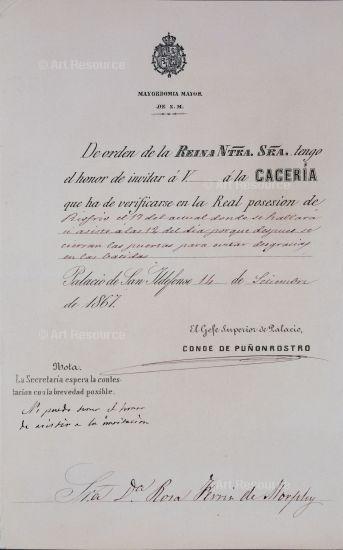 MAYORDOMIA MAYOR
DE S. M.
De orden de la REINA NTRA. SRA. tengo
el honor de invitar á V á la CACERÍA
que ha de verificarse en la Real posesion de
Riofrio el 17 del actual donde se hallará
á las 12 del dia, porque despues se
cierran las puertas para evitar desgracias
en las batidas
Palacio de San Ildefonso 14 de Setiembre
de 1867.
El Gefe Superior de Palacio,
CONDE DE PUÑONROSTRO
Nota.
La Secretaría espera la contes-
tacion con la brevedad posible.
No puedo tener el honor
de asistir a la invitacion
Sra. Dª Rosa de Morphy
© Art Resource